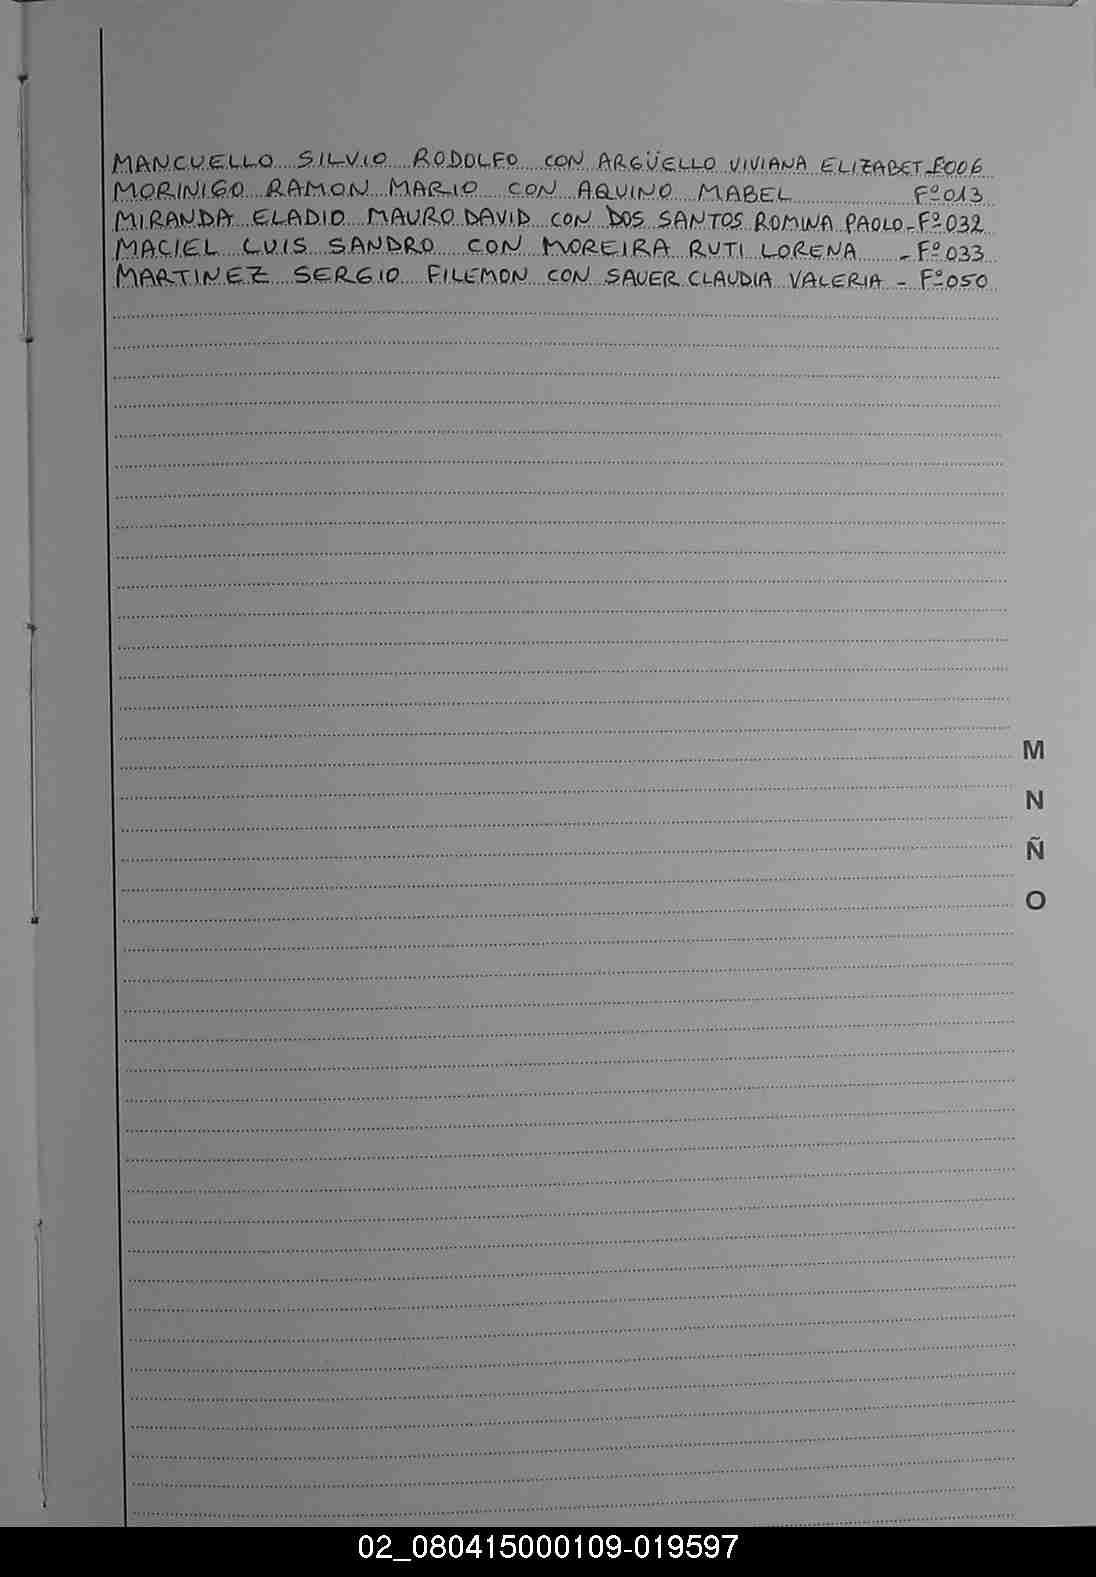 MANCUELLO SILVIO RODOLFO CON ARGÜELLO VIVIANA ELIZABET Fº006
MORINIGO RAMON MARIO CON AQUINO MABEL Fº013
MIRANDA ELADIO MAURO DAVID CON DOS SANTOS ROMINA PAOLO - Fº032
MACIEL LUIS SANDRO CON MOREIRA RUTI LORENA - Fº033
MARTINEZ SERGIO FILEMON CON SAUER CLAUDIA VALERIA - Fº050
M
N
Ñ
O
02_080415000109-019597